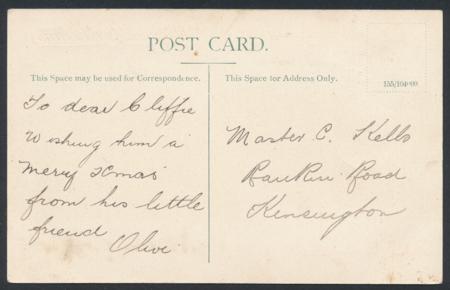 POST CARD.
This Space may be used for Correspondence.
This Space for Address Only.
155/104·00
To dear Cliffie
Wishing him a
Merry Xmas
from his little
friend
Olive
Master C. Kells
Road
Kensington